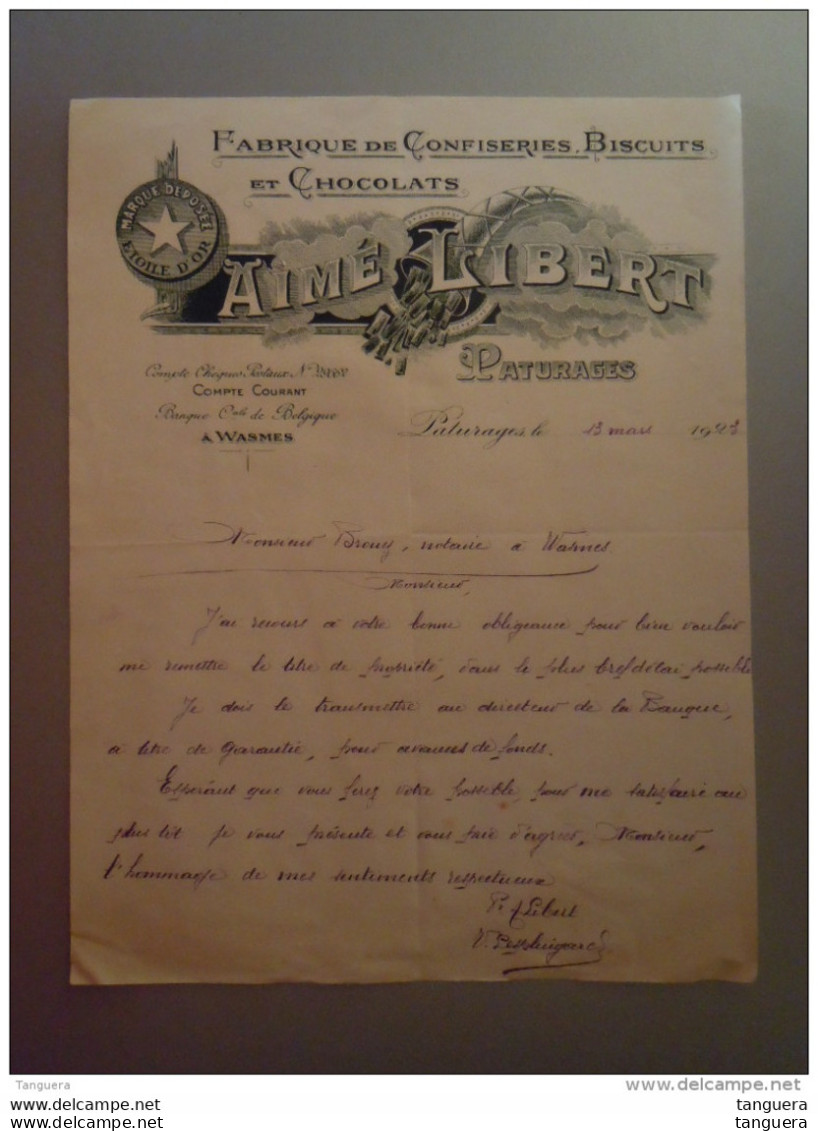 FABRIQUE DE CONFISERIES, BISCUITS
ET CHOCOLATS
MARQUE DEPOSÉE
ETOILE D'OR
AIMÉ LIBERT
PATURAGES
Compte Chèques Postaux N°
COMPTE COURANT
Banque Cale de Belgique
À WASMES
Paturages, le 13 mars 1923
Monsieur , notaire à Wasmes
Monsieur,
J'ai recours à votre bonne obligeance pour bien vouloir
me remettre le titre de propriété, dans le plus bref délai possible
Je dois le transmettre au directeur de la Banque,
à titre de garantie, pour avances de fonds.
Espérant que vous ferez votre possible, pour me satisfaire au
plus tôt je vous présente et vous prie d'agréer, Monsieur,
l'hommage de mes sentiments respectueux
P. A Libert
V.
Tanguera
delcampe.net
tanguera
tanguera
tanguera
tanguera